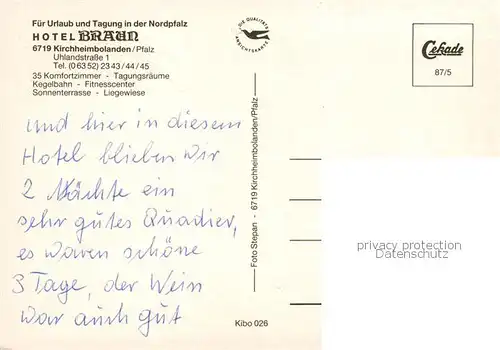 Für Urlaub und Tagung in der Nordpfalz
HOTEL BRAUN
6719 Kirchheimbolanden/Pfalz
Uhlandstraße 1
Tel. (0 63 52) 23 43 / 44 / 45
35 Komfortzimmer - Tagungsräume
Kegelbahn - Fitnesscenter
Sonnenterrasse - Liegewiese
und hier in diesem
Hotel blieben wir
2 Nächte ein
sehr gutes Quadier,
es waren schöne
3 Tage, der Wein
war auch gut
DIE QUALITÄTS
ANSICHTSKARTE
Foto Stepan - 6719 Kirchheimbolanden/Pfalz
Kibo 026
Cekade
87/5
privacy protection
Datenschutz